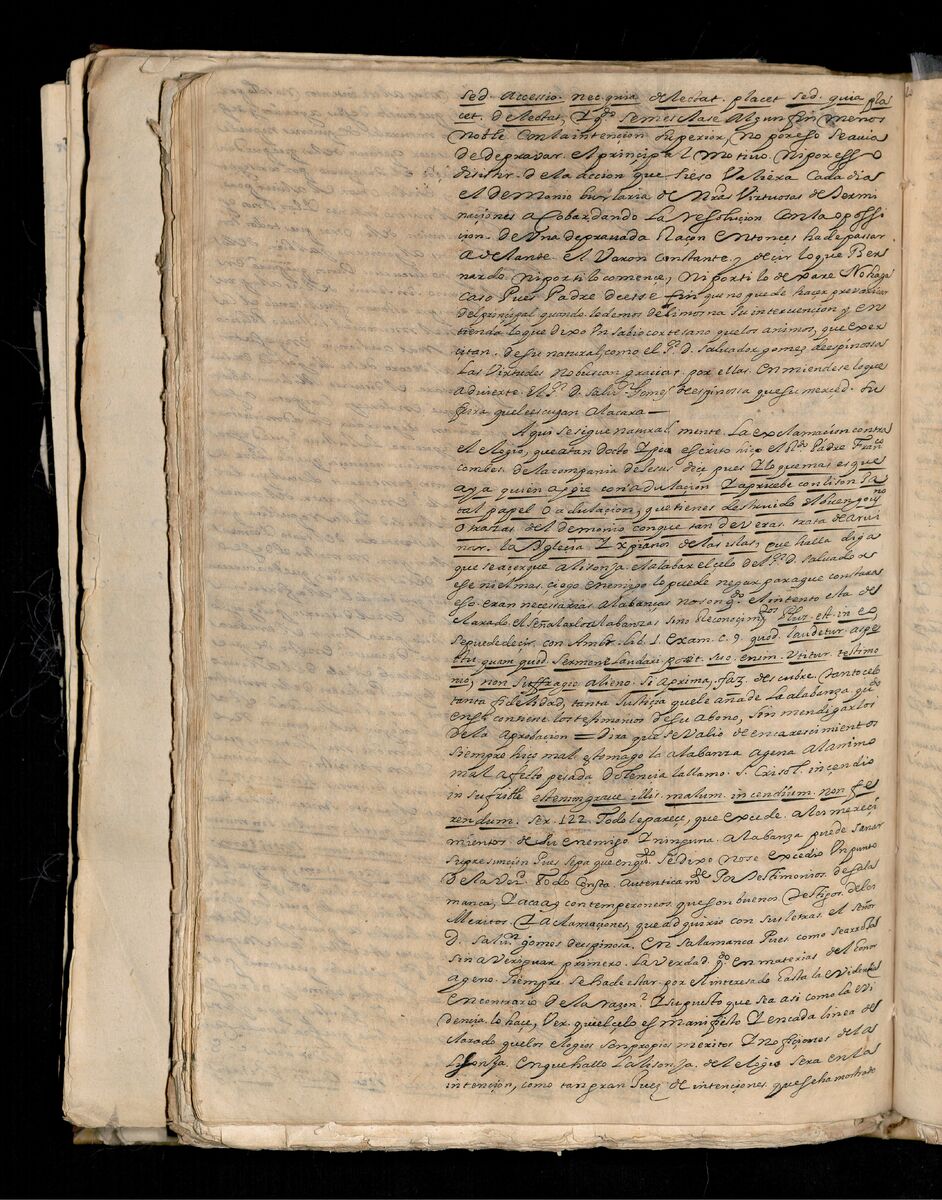 sed. accessio. nec quia delectat. placet sed. quia pla
cet. delectat, I q.do semesclase Algun fin menos
noble con la intençion superior, no por eso se avia
de depravar. el principal motivo. ni por esso
desistir. de la accion que si eso Valiera Cada dia
el demonio burlaria de Nras Virtuosas determi
naciones acobardando la ressoluçion con la oposi
cion. de una depravada Raçon entonces ha de passar
adelante el Varon constante. y decir lo que Ber
nardo. ni por ti lo comence, ni por ti lo dexare No haga
caso Pues Padre de esse fin que no puede hacer prevaricar
del principal quando le demos de limosna su intervencion y en
tienda lo que dixo Un sabio cortesano que los animos, que exer
çitan. de su natural, como el S.r D. Salvador gomes de espinossa
Las Virtudes No buscan graciar. por ellas. Enmiendese lo que
advierte. el S.r D. Salv.r Gomes de espinossa que su merced. su
fiera que le escupan A la cara —
Aqui se sigue natural mente. La exclamacion contra
el elogio, que a tan docto I pio escrito hiço el R.do Padre Fran.co
Combes. de la compania de Jesus dice pues I lo que mas es que
aya quien apoie con adulacion I apruebe con lison Ja
tal papel O adulacion, que tienes destruido el buen govi.no
O trazas del demonio con que tan de veras. trata de arui
nar. la Yglecia I xpianos de las islas, que halla diga
que se acerque A lisonja. el alabar el celo del S.r D. Salvador
esse ni el mas. ciego enemigo lo puede negar para que constaras
esso. eran necessarias alabanças no son q.do el intento esta de
clarado. el señalarlos Alabanzas sino Reconocim.tos Plus. est. in eo,
se puede decir. con Ambr. lib. 1. Exam. c. 9. quod. laudetur. aspe
ctu, quam quod. sermone laudari potit. suo. enim. Vtitur. testimo
nio, non suffragio alieno. si a prima, faz. descubre. tanto celo
tanta fidelidad, tanta Justiçia que le añade la alabanza. qu.do
en si contiene los testimonios de su abono, sin mendigarlos
de la aprobacion = dira que se Valio de encarescimientos
siempre hiço mal. estomago la alabanza agena Al animo
mal afecto pesada dolencia la llamo. S. Crisol. incendio
insufrible est enim grave illis. malum. incendium. non fe
rendum. ser. 122. Todo le pareçe, que excede. a los mereçi
mientos. de su enemigo I ninguna. alabanza puede sanar
su presuncion Pues sepa que en q.do se dixo No se excedio Un punto
de la Ver.d Todo Consta. autenticam.te Por testimonios. de Sala
manca, I acaay contemporeneos que son buenos testigos. de los
Meritos. I aclamaçiones, que adquirio con sus letras. el Señor
D. Salv.r gomes de espinosa. en Salamanca Pues como se arroja
sin averiguar primero. la Verdad. q.do en materias del honor
ageno. siempre. se ha de estar por el interesado hasta la evidençia
en contrario de la razon. I supuesto que sea asi como la evi
dençia. lo hace, Ver. que el çelo es manifiesto I en cada linea de
clarado que los elogios son propios meritos I no ficiones de la
Lisonja. en que hallo la lisonja. del elogio sera en la
intençion, como tan gran Juez de intençiones. que se ha mostrado